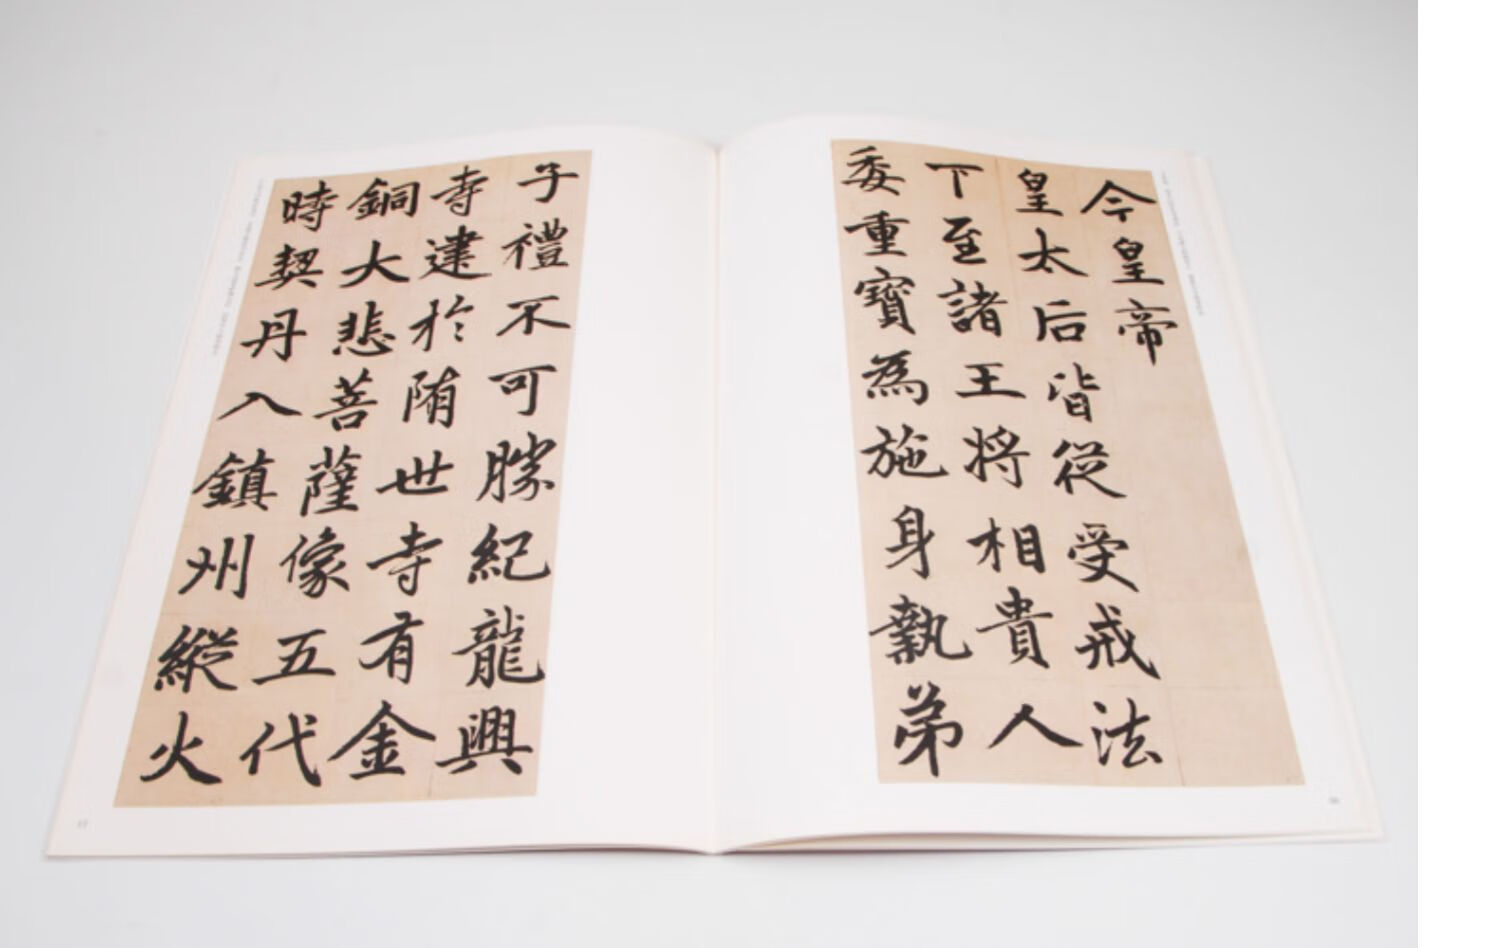 今皇帝
皇太后皆從受戒法
下至諸王将相貴人
委重寶為施身執弟
子禮不可勝紀龍興
寺建於隋世寺有金
銅大悲菩薩像五代
時契丹入鎮州縱火